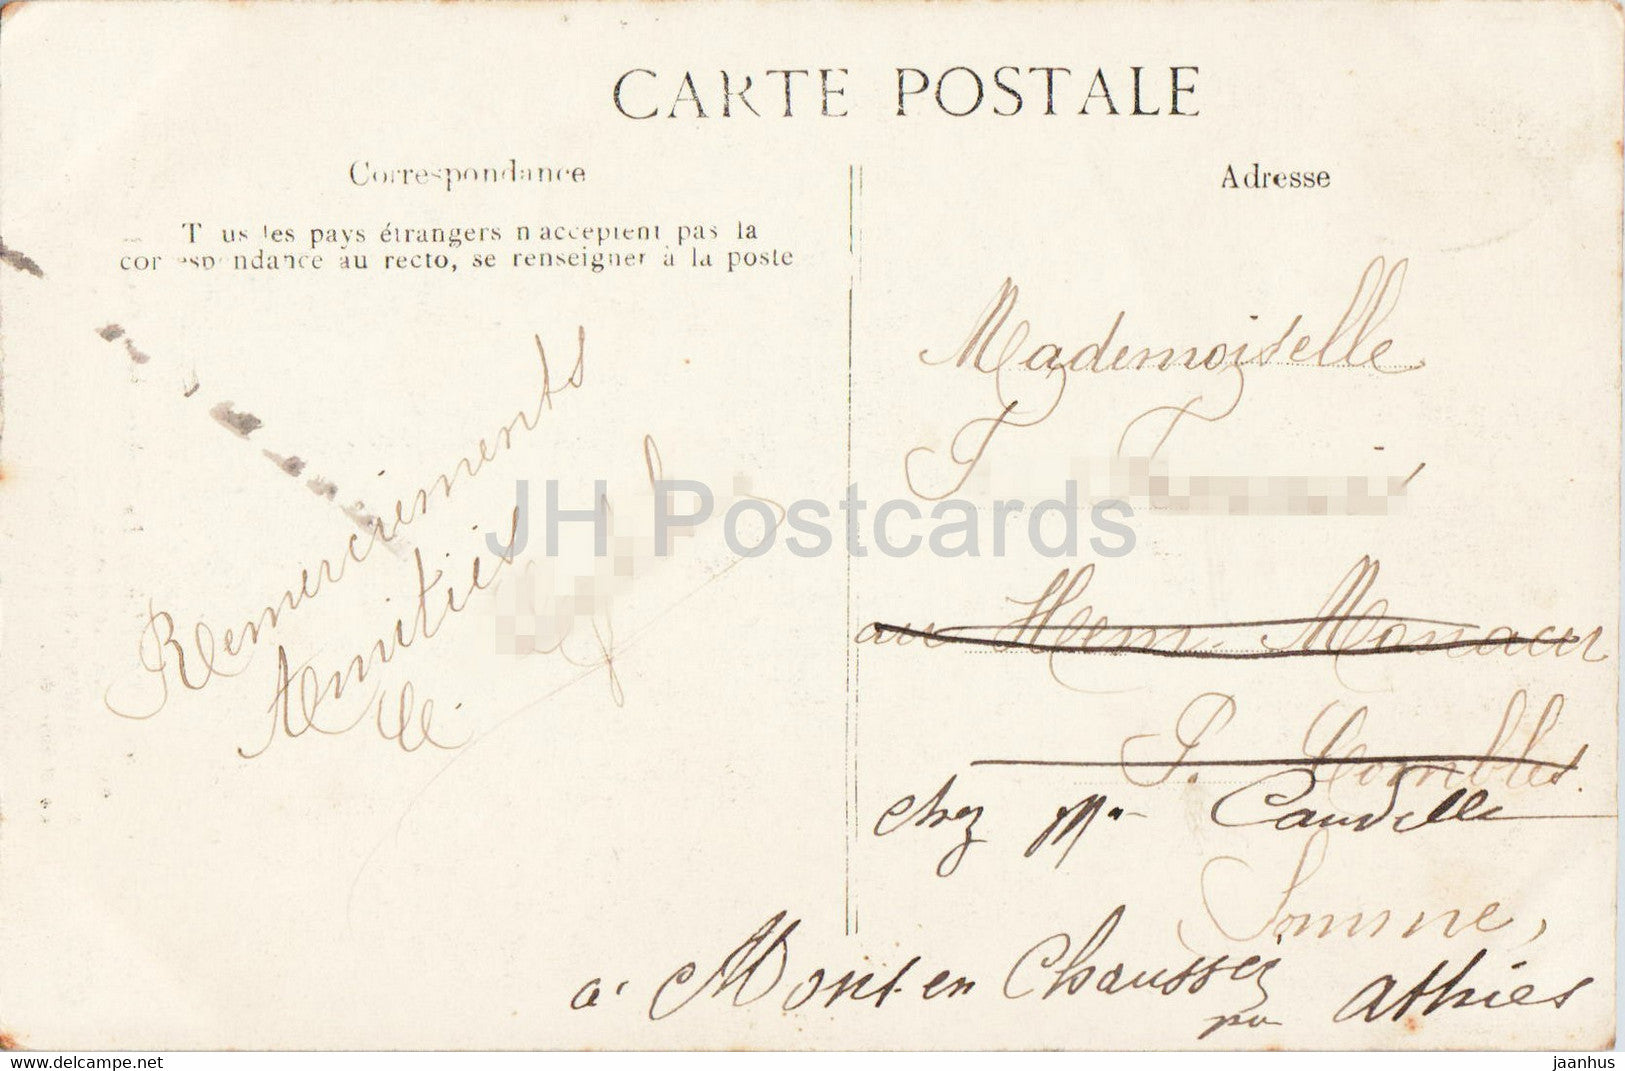 CARTE POSTALE
Correspondance
Tous les pays étrangers n'acceptent pas la
correspondance au recto, se renseigner à la poste
Adresse
Remerciements
Amitiés
Mademoiselle
au Hem-Monacu
P. Combles
chez Mr
Somme,
à Mont-en Chaussée
par Athies
JH Postcards
delcampe.net
jaanhus